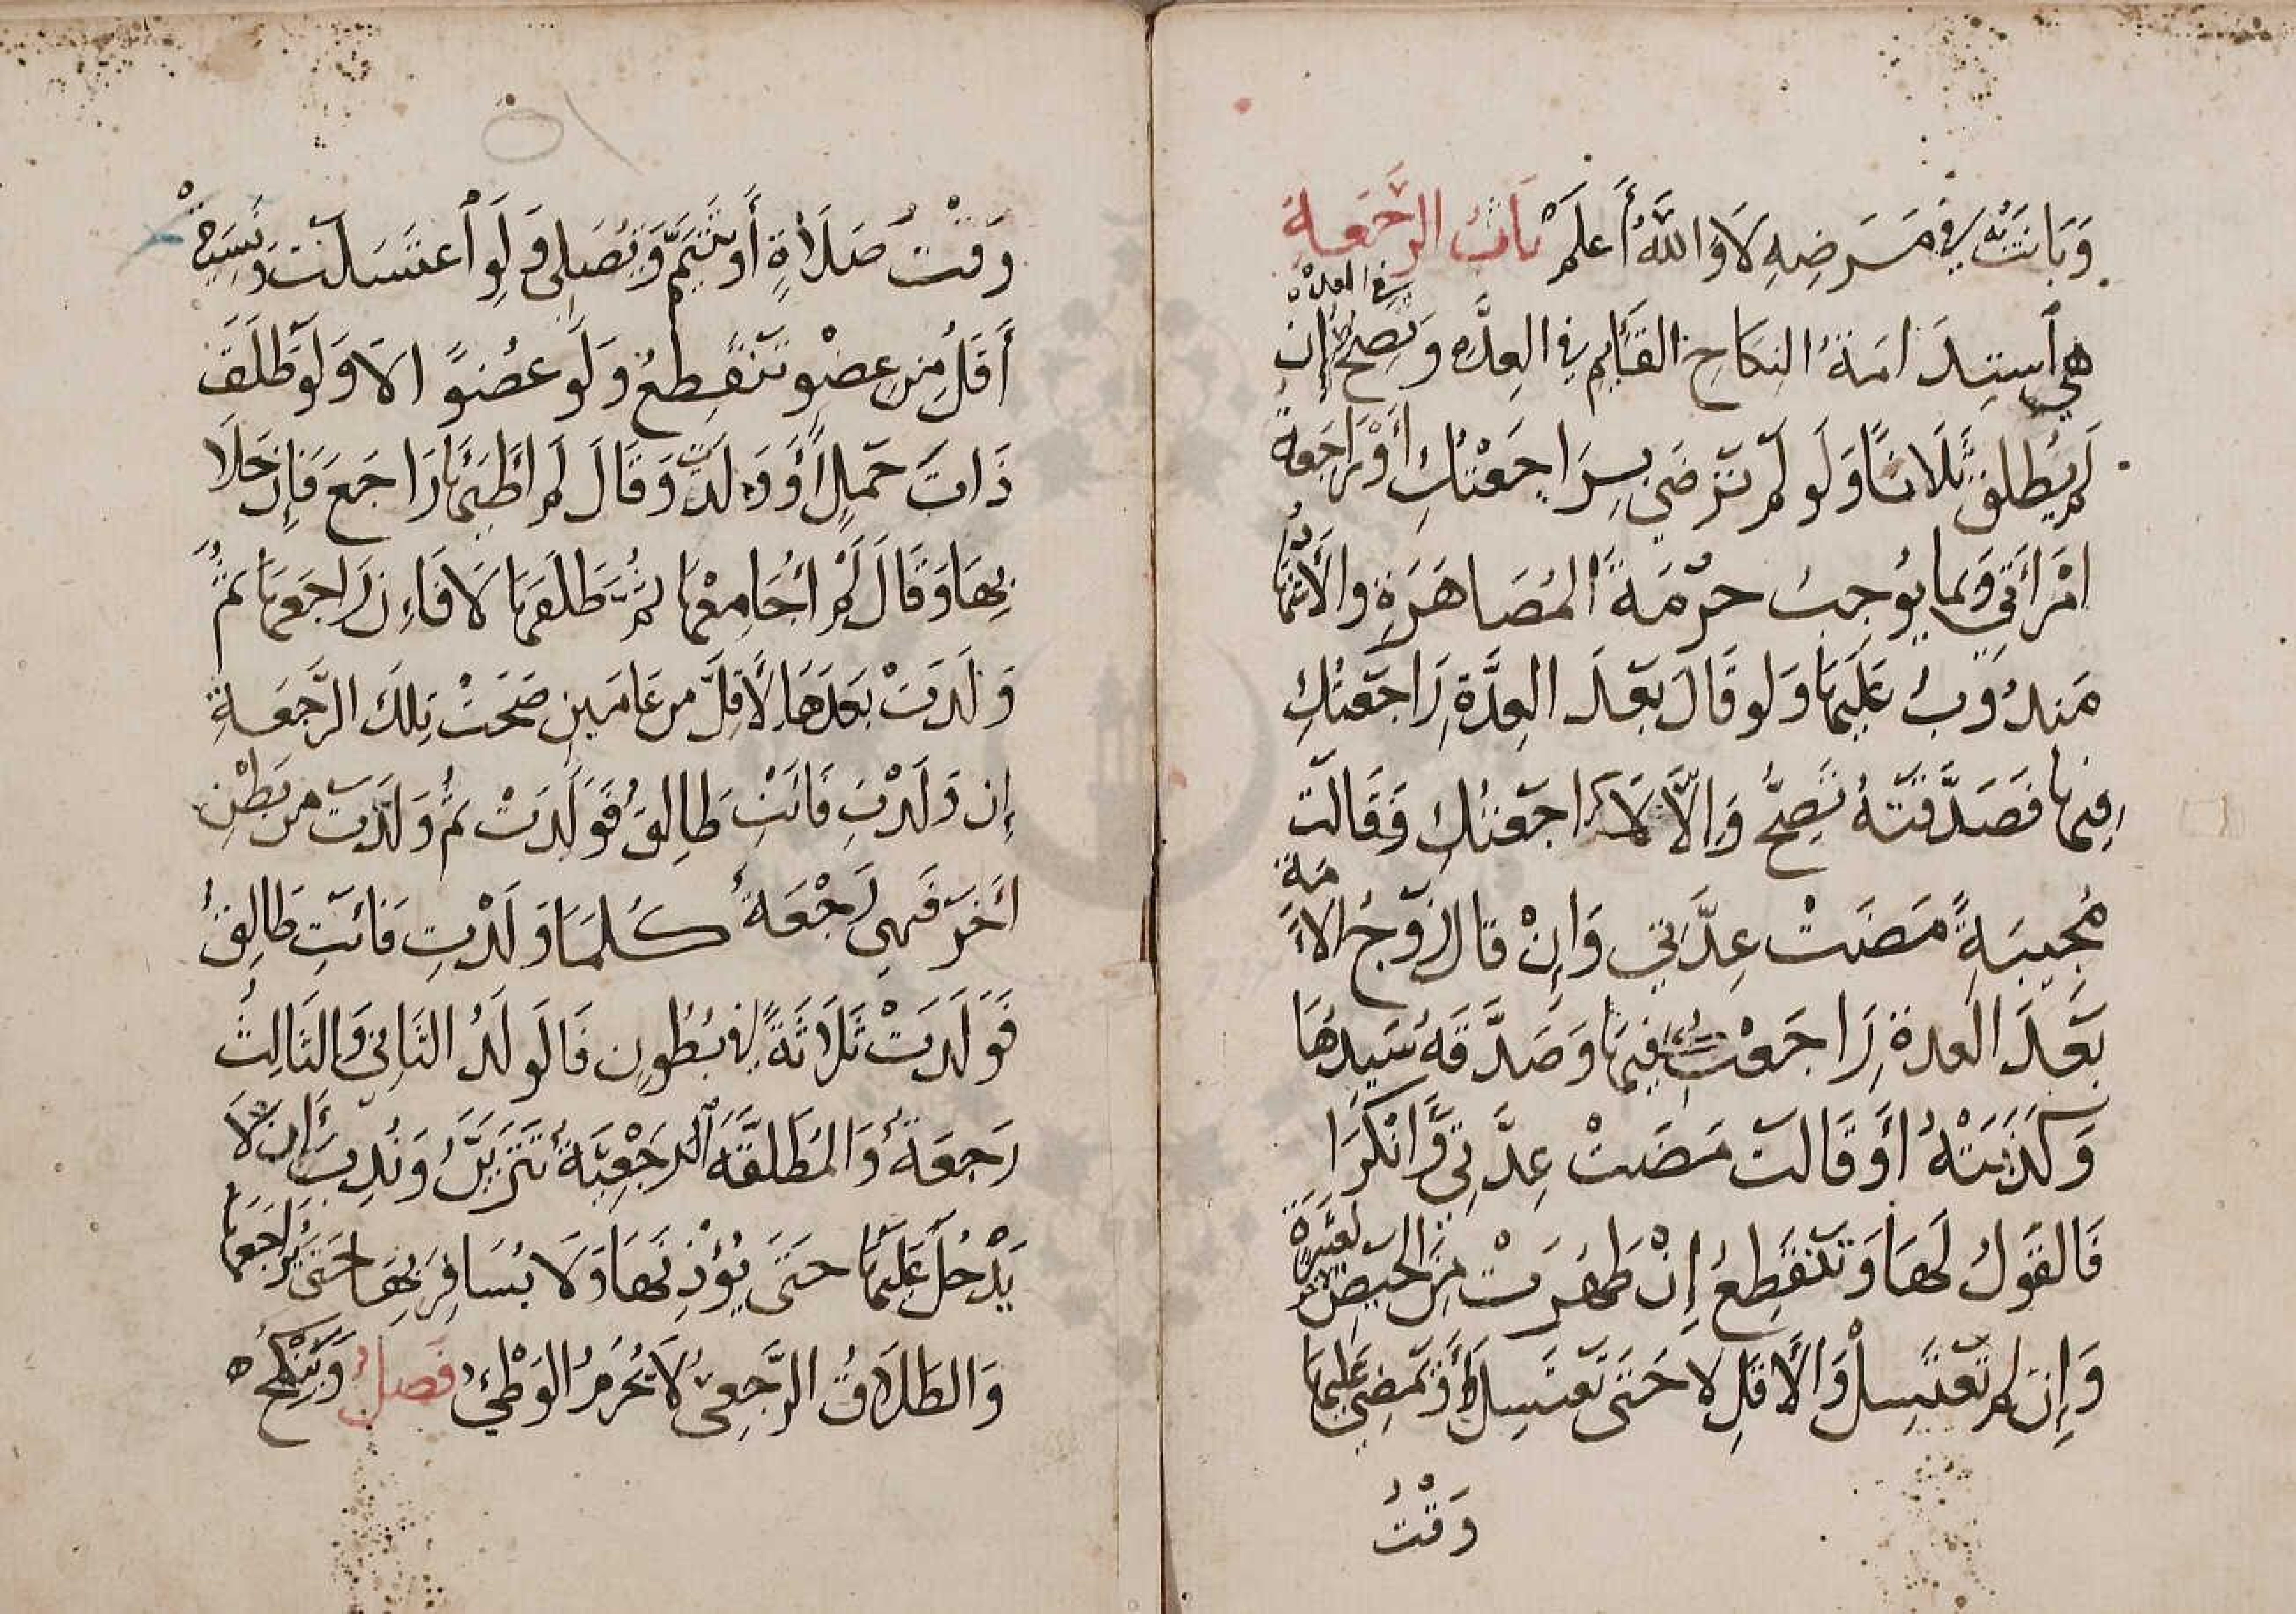 وَبَانَتْ فِي مَرَضِهِ لَا وَاللَّهُ أَعْلَمُ بَابُ الرَّجْعَةِ
هي استدامة النكاح القائم في العدة وتصح في العدة إن
لم يطلق ثلاثا ولو لم ترضى براجعتك أو راجعة
امرأتي وبما يوجب حرمة المصاهرة والاشهاد
مندوب عليها ولو قال بعد العدة راجعتك
فيها فصدقته تصح وإلا لا كراجعتك فقالت
مجيبة مضت عدتي وإن قال الزوج الأمة
بعد العدة راجعت فيها وصدقه سيدها
وكذبته أو قالت مضت عدتي وأنكرا
فالقول لها وتنقطع إن طهرت من الحيض لعشرة
وإن لم تغتسل والأقل لا حتى تغتسل أو تمضي عليها
وقت
٥١
وقت صلاة أو تتيمم وتصلي ولو اغتسلت ونسيت
أقل من عضو تنقطع ولو عضوا لا ولو طلق
ذات حمل أو ولدت وقال لم أطئها راجع فإن خلا
بها وقال لم أجامعها ثم طلقها لا فإن راجعها ثم
ولدت بعدها لأقل من عامين صحت تلك الرجعة
إن ولدت فأنت طالق فولدت ثم ولدت من بطن
اخر فهي رجعة كلما ولدت فأنت طالق
فولدت ثلاثة في بطون فالولد الثاني والثالث
رجعة والمطلقة الرجعية تتزين وندب أن لا
يدخل عليها حتى يؤذنها ولا يسافر بها حتى يراجعها
والطلاق الرجعي لا يحرم الوطئ فصل وينكح